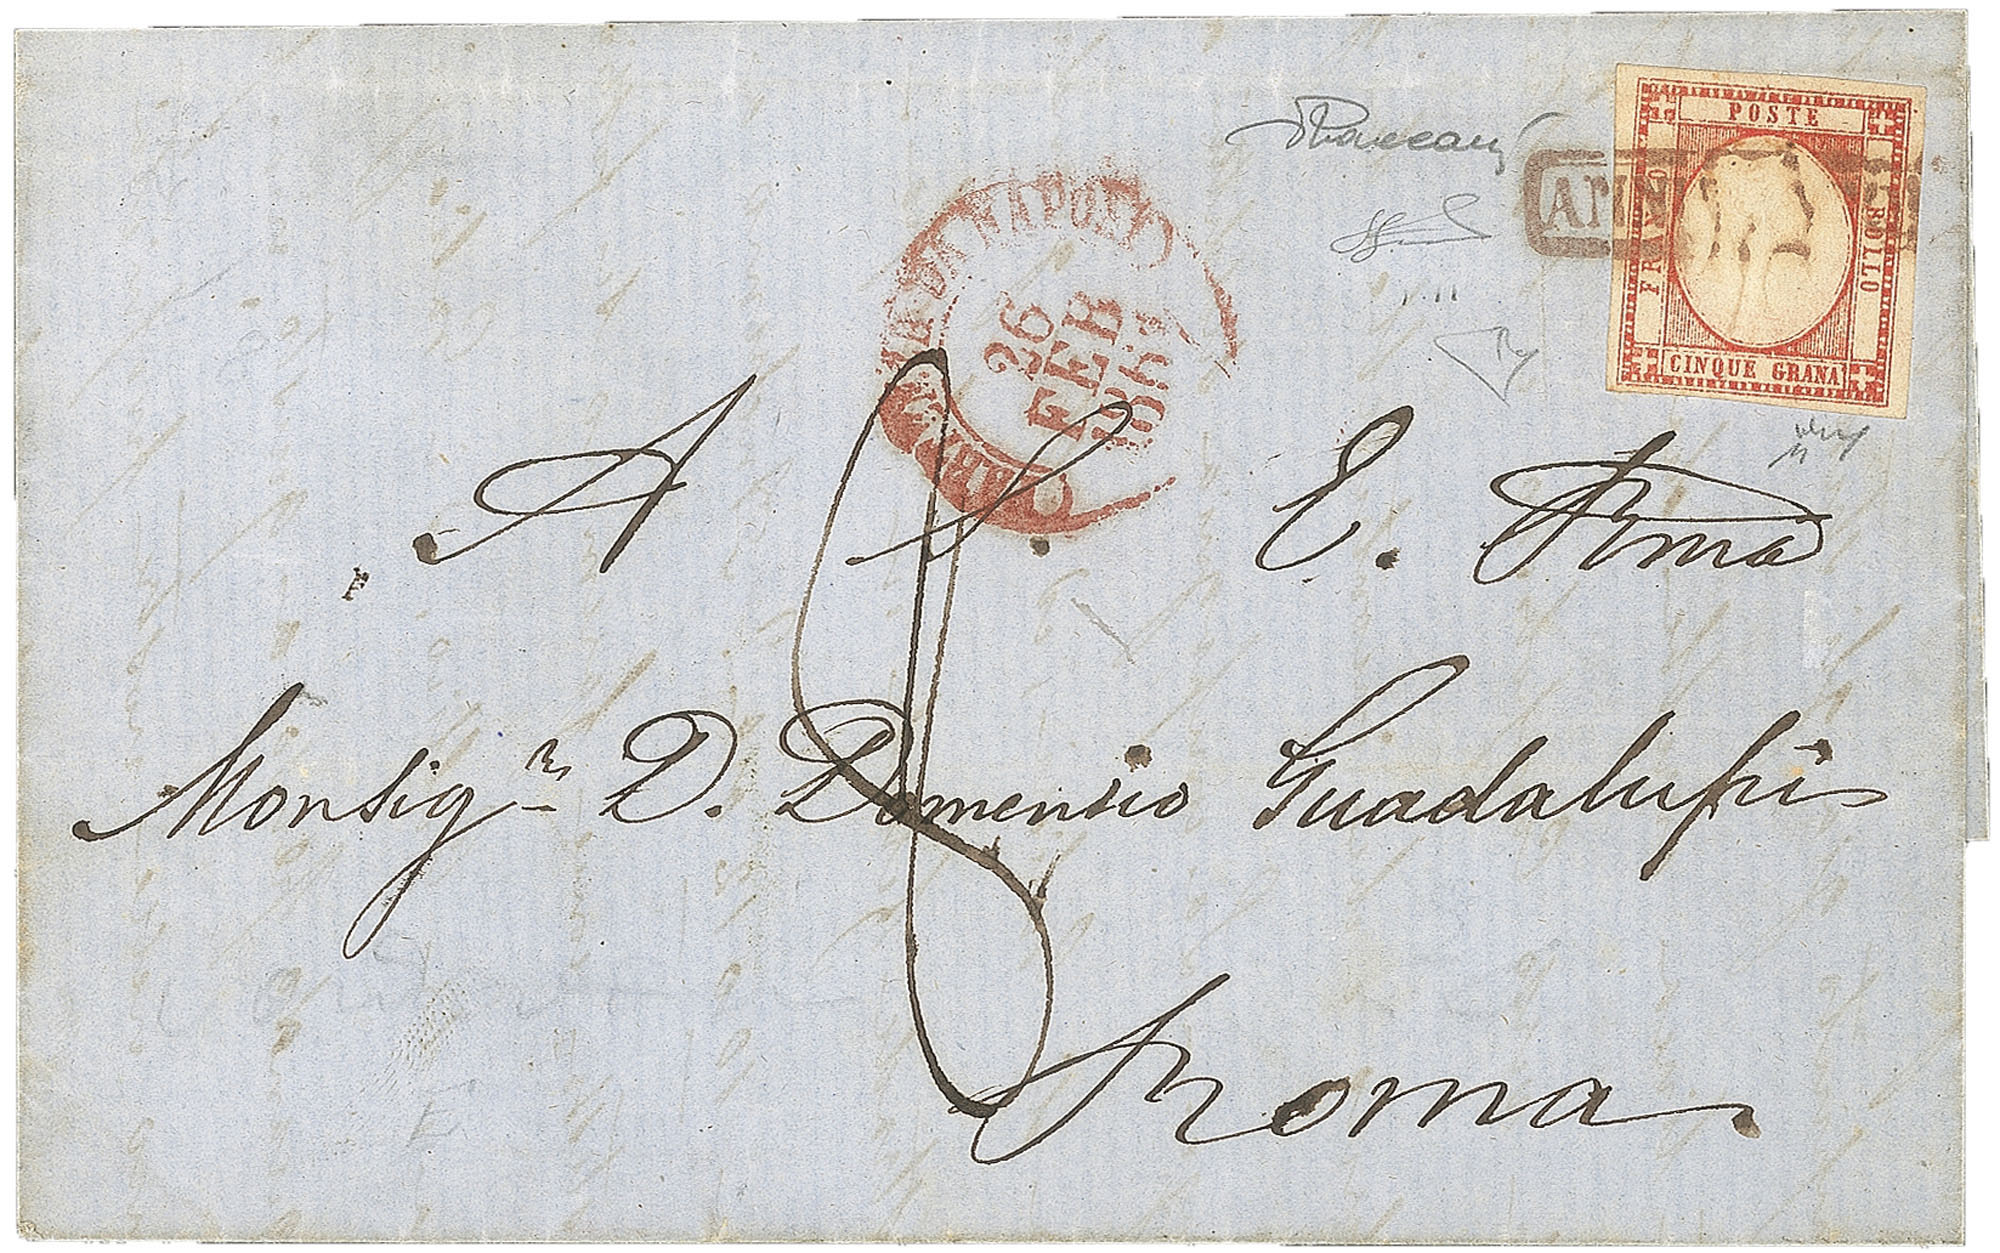 POSTE
FRANCO
BOLLO
CINQUE GRANA
26
FEB
A S. E. Rma
Monsigr. D. Domenico Guadalupi
Roma.